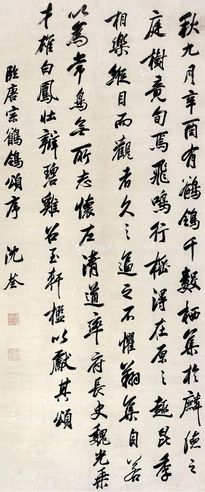 秋九月辛酉有鶺鴒千數栖集於麟德之
庭樹竟旬焉飛鳴行搖得在原之趣昆季
相樂縱目而觀者久之逼之不懼翔集自若
以為常鳥無所志懷左清道率府長史魏光乘
才雄白鳳壯辯碧雞召至軒檻以獻其頌
臨唐宗鶺鴒頌序 沈荃